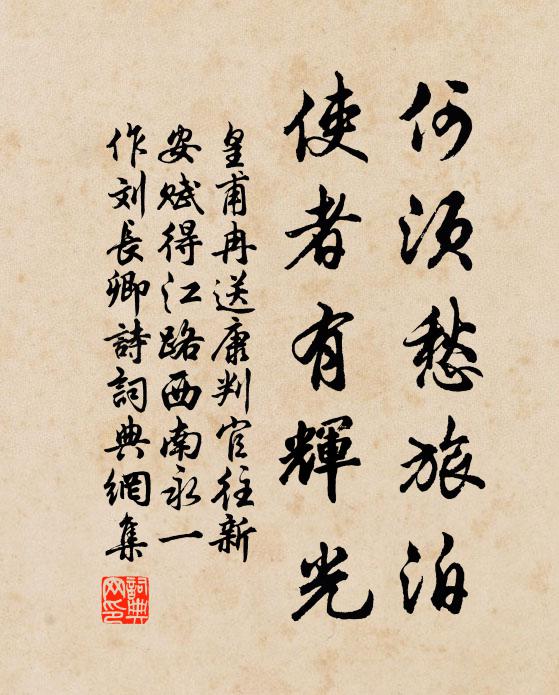 何須愁旅泊
使者有輝光
皇甫冉送康判官往新
安賦得江路西南永一
作刘長卿詩詞典網集
詞典
网印